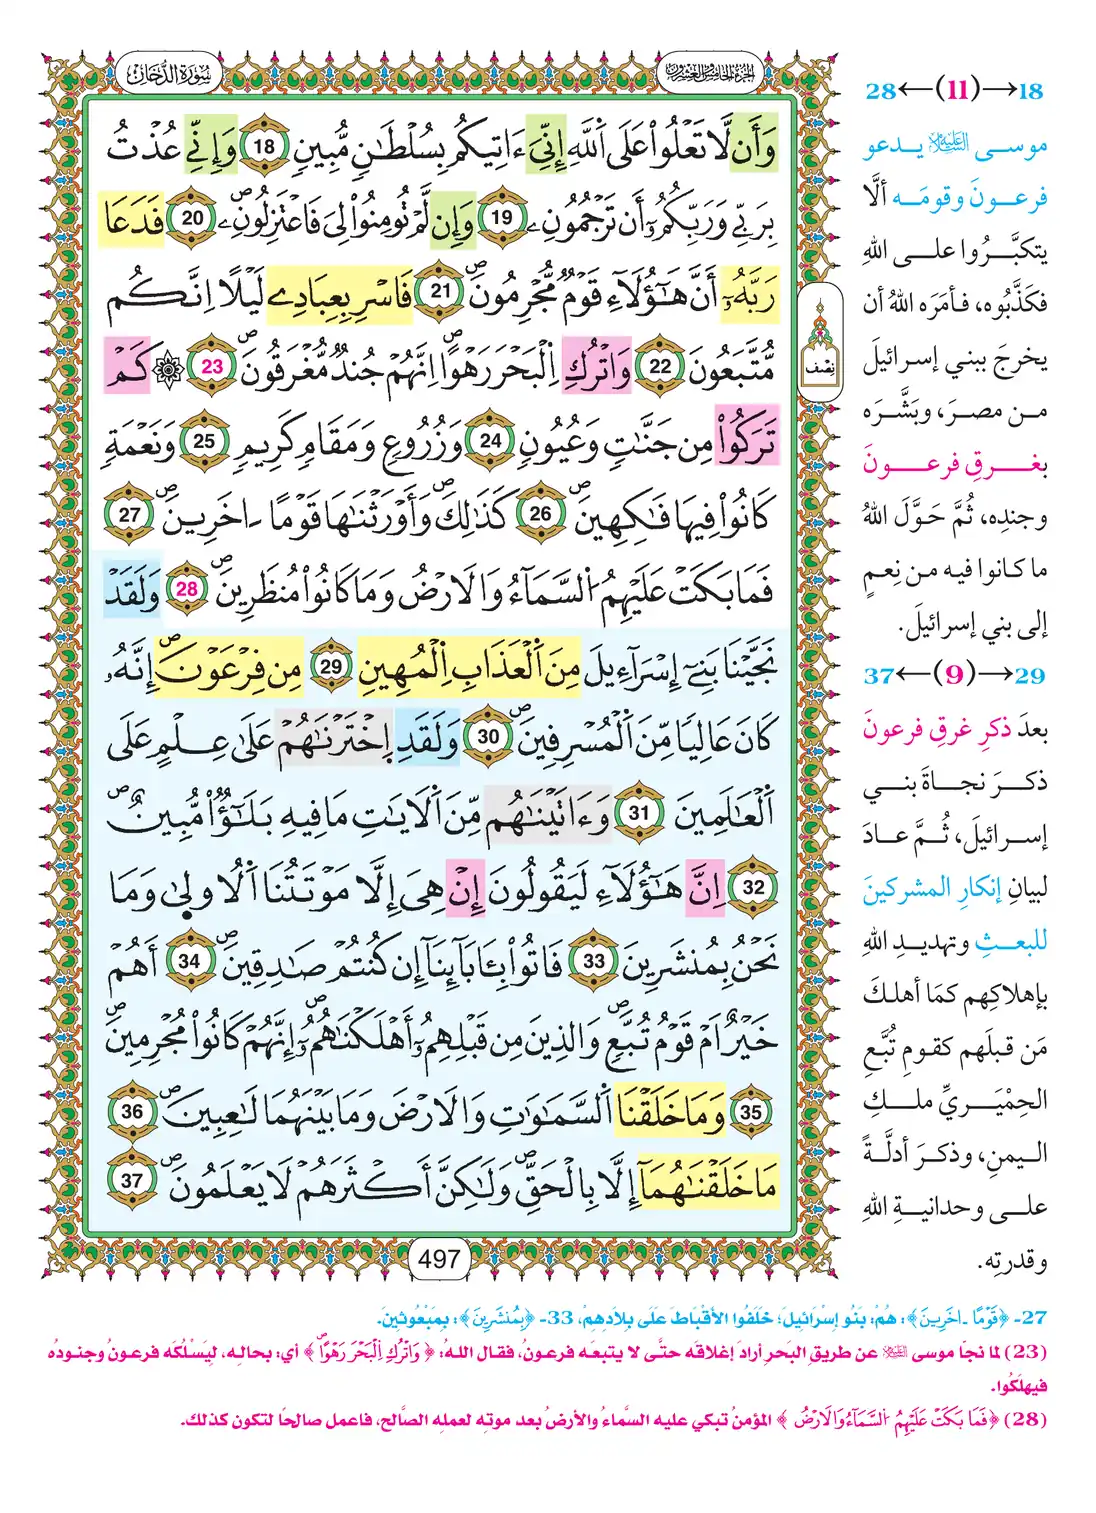 سُورَةُ الدُّخَانِ
الجزء الخامس والعشرون
وَأَن لَّا تَعْلُواْ عَلَى اَللَّهِ إِنِّيَ ءَاتِيكُم بِسُلْطَٰنٖ مُّبِينٖ 18 وَإِنِّے عُذْتُ
بِرَبِّے وَرَبِّكُمُۥٓ أَن تَرْجُمُونِۦ 19 وَإِن لَّمْ تُومِنُواْ لِيَ فَاعْتَزِلُونِۦ 20 فَدَعَا
رَبَّهُۥٓ أَنَّ هَٰٓؤُلَآءِ قَوْمٞ مُّجْرِمُونَ 21 فَاسْرِ بِعِبَادِے لَيْلًا اِنَّكُم
مُّتَّبَعُونَ 22 وَاتْرُكِ اِلْبَحْرَ رَهْوًاۖ اِنَّهُمْ جُندٞ مُّغْرَقُونَ 23 ۞ كَمْ
تَرَكُواْ مِن جَنَّٰتٖ وَعُيُونٖ 24 وَزُرُوعٖ وَمَقَامٖ كَرِيمٖ 25 وَنَعْمَةٖ
كَانُواْ فِيهَا فَٰكِهِينَۖ 26 كَذَٰلِكَۖ وَأَوْرَثْنَٰهَا قَوْمًا ـاخَرِينَۖ 27
فَمَا بَكَتْ عَلَيْهِمُ اُلسَّمَآءُ وَالَارْضُ وَمَا كَانُواْ مُنظَرِينَۖ 28 وَلَقَدْ
نَجَّيْنَا بَنِےٓ إِسْرَآءِيلَ مِنَ اَلْعَذَابِ اِلْمُهِينِ 29 مِن فِرْعَوْنَۖ إِنَّهُۥ
كَانَ عَالِيٗا مِّنَ اَلْمُسْرِفِينَۖ 30 وَلَقَدِ اِخْتَرْنَٰهُمْ عَلَىٰ عِلْمٍ عَلَى
اَلْعَٰلَمِينَ 31 وَءَاتَيْنَٰهُم مِّنَ اَلَايَٰتِ مَا فِيهِ بَلَٰٓؤٞاْ مُّبِينٌۖ
32 اِنَّ هَٰٓؤُلَآءِ لَيَقُولُونَ إِنْ هِيَ إِلَّا مَوْتَتُنَا اَلُاولۭيٰ وَمَا
نَحْنُ بِمُنشَرِينَ 33 فَاتُواْ بِـَٔابَآئِنَآ إِن كُنتُمْ صَٰدِقِينَۖ 34 أَهُمْ
خَيْرٌ اَمْ قَوْمُ تُبَّعٖۖ وَالذِينَ مِن قَبْلِهِمُۥٓ أَهْلَكْنَٰهُمُۥٓۖ إِنَّهُمْ كَانُواْ مُجْرِمِينَۖ
35 وَمَا خَلَقْنَا اَلسَّمَٰوَٰتِ وَالَارْضَ وَمَا بَيْنَهُمَا لَٰعِبِينَۖ 36
مَا خَلَقْنَٰهُمَآ إِلَّا بِالْحَقِّۖ وَلَٰكِنَّ أَكْثَرَهُمْ لَا يَعْلَمُونَۖ 37
نِصْف
497
18→(11)←28
موسى عليه السلام يدعو
فرعونَ وقومَه ألَّا
يتكبَّرُوا على اللهِ
فكَذَّبُوه، فأمَرَه اللهُ أن
يخرجَ ببني إسرائيلَ
من مصرَ، وبَشَّرَه
بغرقِ فرعونَ
وجندِه، ثُمَّ حَوَّلَ اللهُ
ما كانوا فيه من نِعمٍ
إلى بني إسرائيلَ.
29→(9)←37
بعدَ ذكرِ غرقِ فرعونَ
ذكرَ نجاةَ بني
إسرائيلَ، ثُمَّ عادَ
لبيانِ إنكارِ المشركينَ
للبعثِ وتهديدِ اللهِ
بإهلاكِهم كمَا أهلكَ
مَن قبلَهم كقومِ تُبَّعِ
الحِمْيَريِّ ملكِ
اليمنِ، وذكرَ أدلَّةً
على وحدانيةِ اللهِ
وقدرتِه.
27- ﴿قَوْمًا ـاخَرِينَ﴾: هُمْ: بَنُو إِسْرَائِيلَ؛ خَلَفُوا الأَقْبَاطَ عَلَى بِلَادِهِمْ، 33- ﴿بِمُنشَرِينَ﴾: بِمَبْعُوثِينَ.
(23) لما نجا موسى عليه السلام عن طريقِ البَحرِ أرادَ إغلاقَه حتَّى لا يتبعَه فرعونُ، فقال اللهُ: ﴿وَاتْرُكِ اِلْبَحْرَ رَهْوًاۖ﴾ أي: بحالِه، ليَسْلُكَه فرعونُ وجنودُه
فيهلَكُوا.
(28) ﴿فَمَا بَكَتْ عَلَيْهِمُ اُلسَّمَآءُ وَالَارْضُ﴾ المؤمنُ تبكي عليه السَّماءُ والأرضُ بعد موتِه لعملِه الصَّالحِ، فاعمل صالحًا لتكون كذلك.